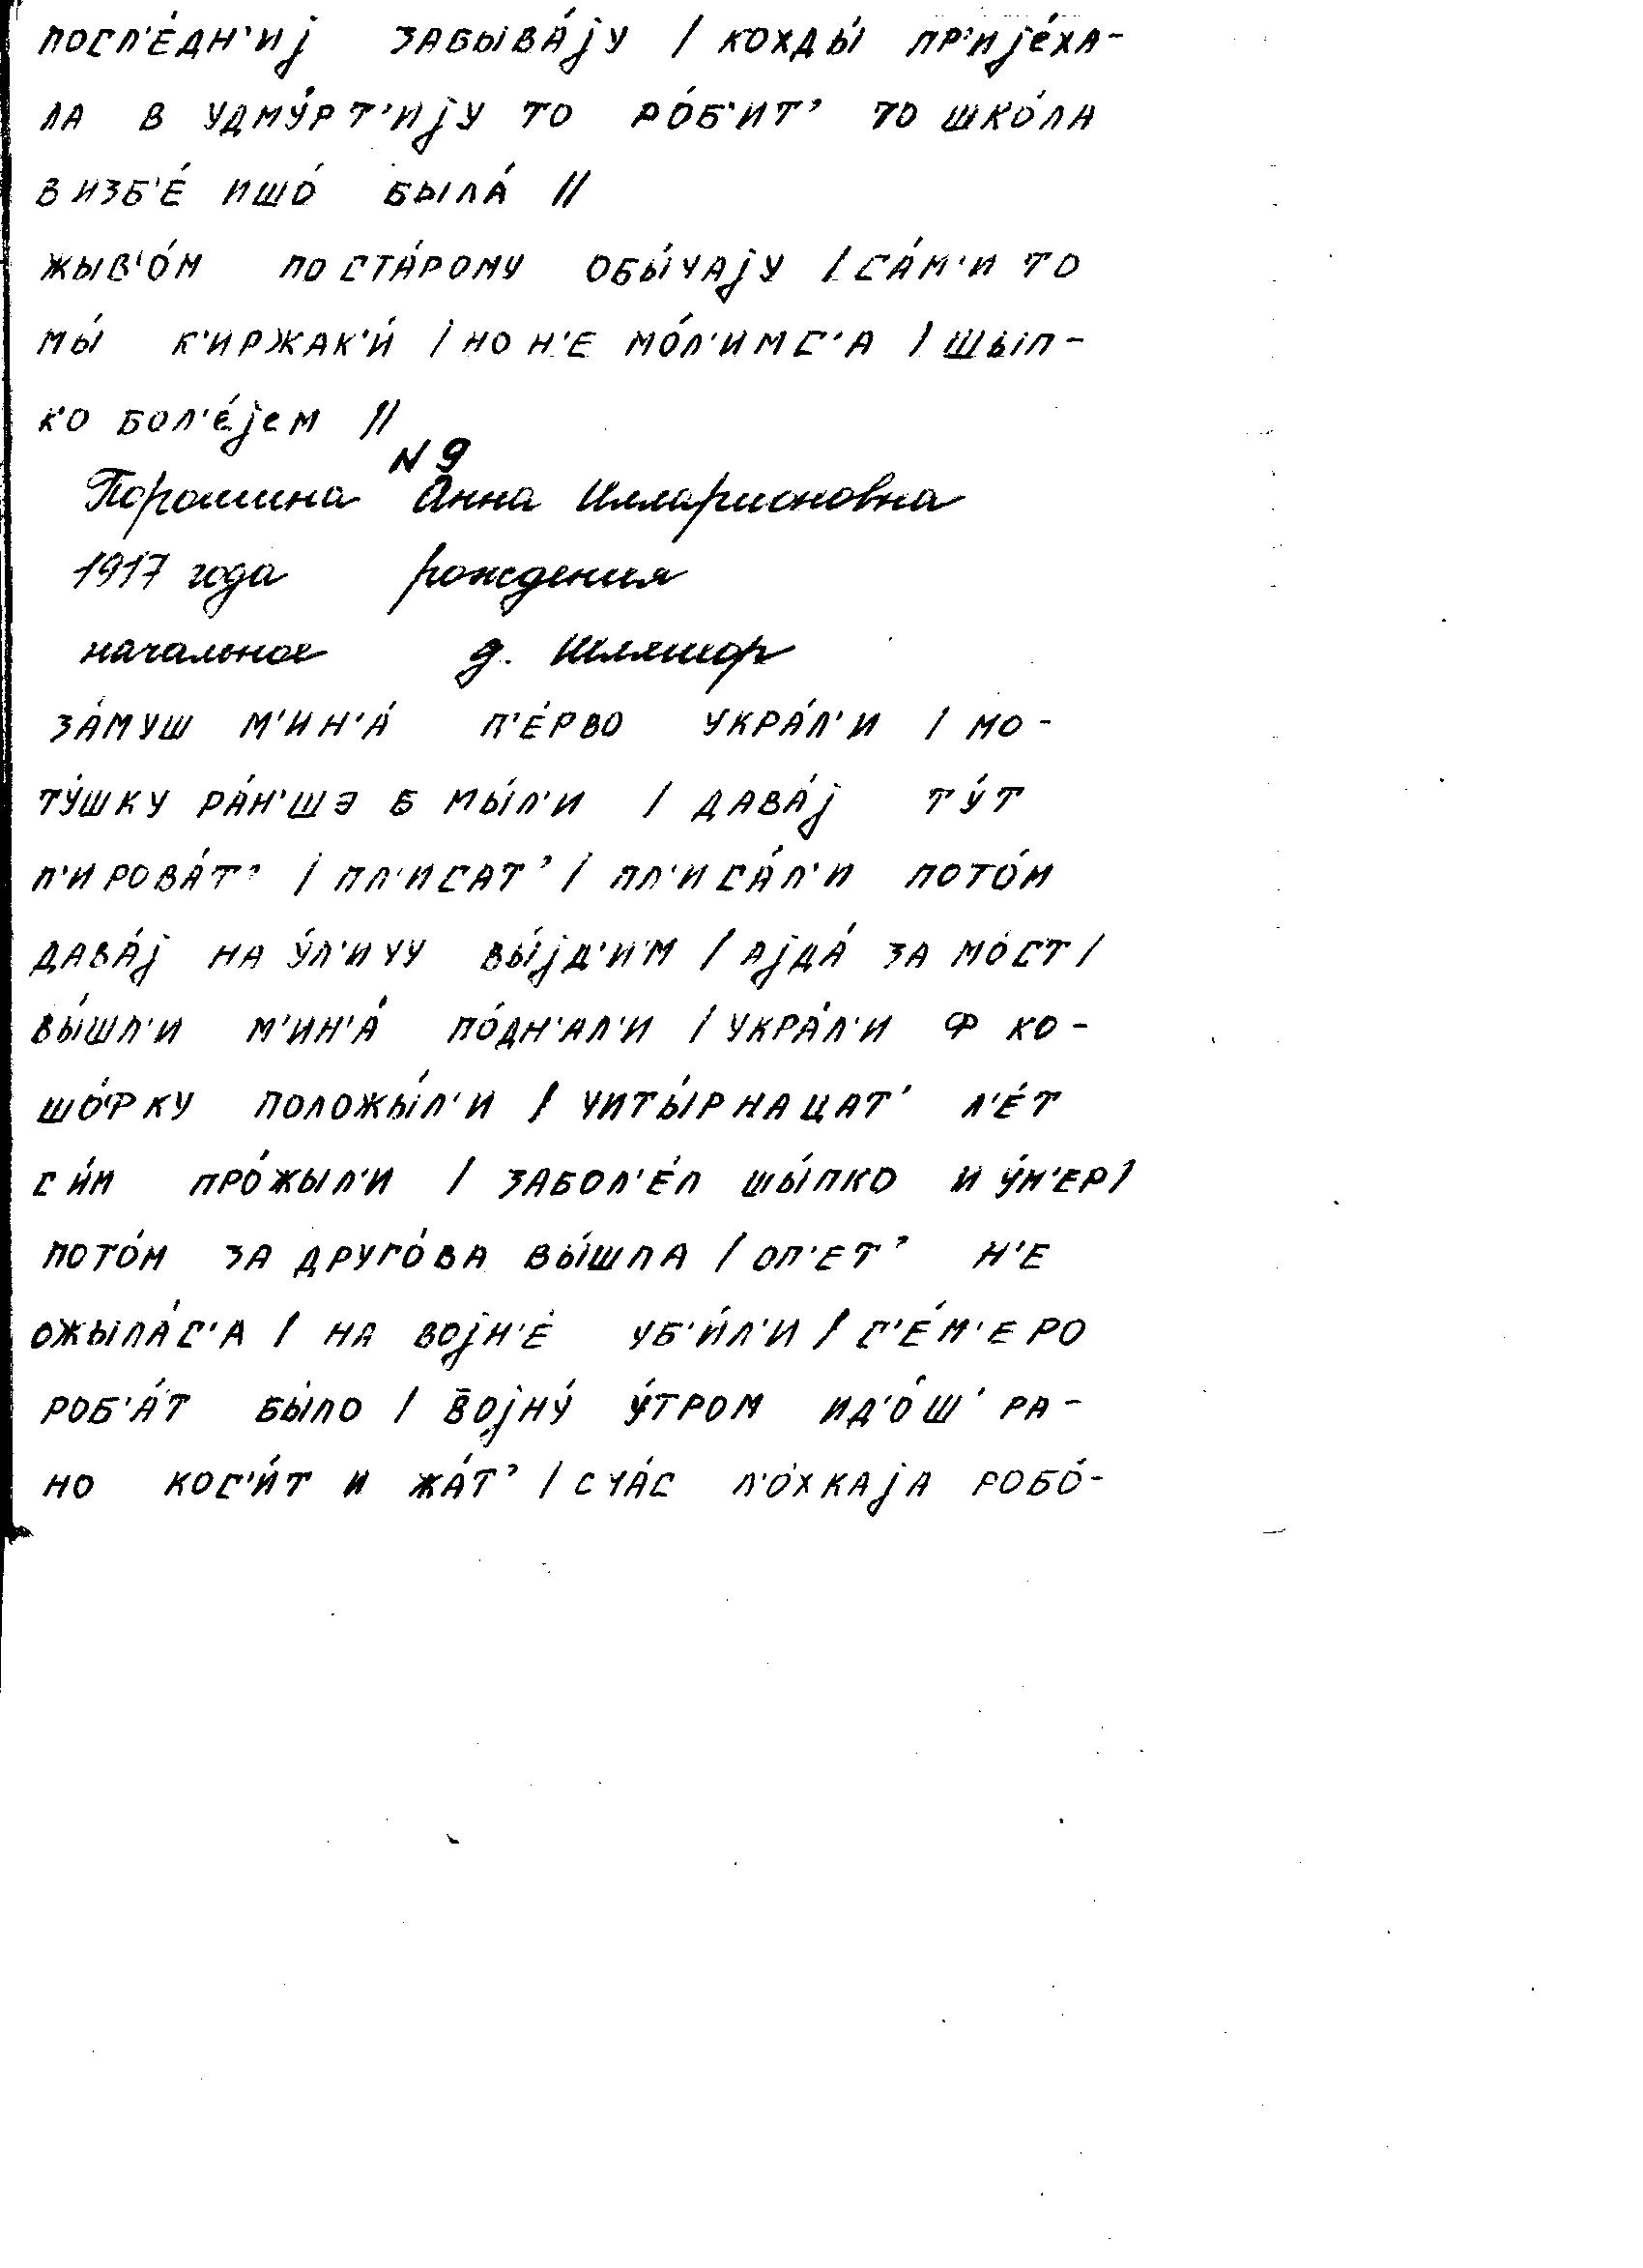 посл'е́дн'иj забыва́jу / кохды́ пр'иjе́ха-
ла в удму́рт'иjу то ро́б'ит' то шко́ла
визб'е́ ишо́ была́ //
жыв'о́м по ста́рому обы́чаjу / са́м'и то
мы́ к'иржак'и́ / но н'е мо́л'имс'а / шып-
ко бол'е́jем //
N 9
Порошина Анна Илларионовна
1917 года рождения
начальное д. Шляшор
за́муш м'ин'а́ п'е́рво укра́л'и / мо-
ту́шку ра́н'шэ б мы́л'и / дава́j ту́т
п'ирова́т' / пл'исат' / пл'иса́л'и пото́м
дава́j на у́л'ичу вы́jд'им / аjда́ за мо́ст /
вы́шл'и м'ин'а́ по́дн'ал'и / укра́л'и ф ко-
шо́фку положы́л'и / читы́рнацат' л'е́т
с и́м про́жыл'и / забол'е́л шы́пко и у́м'ер /
пото́м за друго́ва вы́шла / оп'ет' н'е
ожыла́с'а / на воjн'е́ уб'и́л'и / с'е́м'еро
роб'а́т бы́ло / в̄оjну́ у́тром ид'о́ш' ра-
но кос'и́т и жа́т' / счáс л'о́хкаjа робо́-